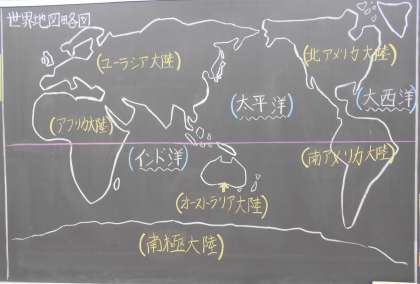 世界地図略図
(ユーラシア大陸)
(北アメリカ大陸)
(太平洋)
(大西洋)
(アフリカ大陸)
(インド洋)
(南アメリカ大陸)
(オーストラリア大陸)
(南極大陸)